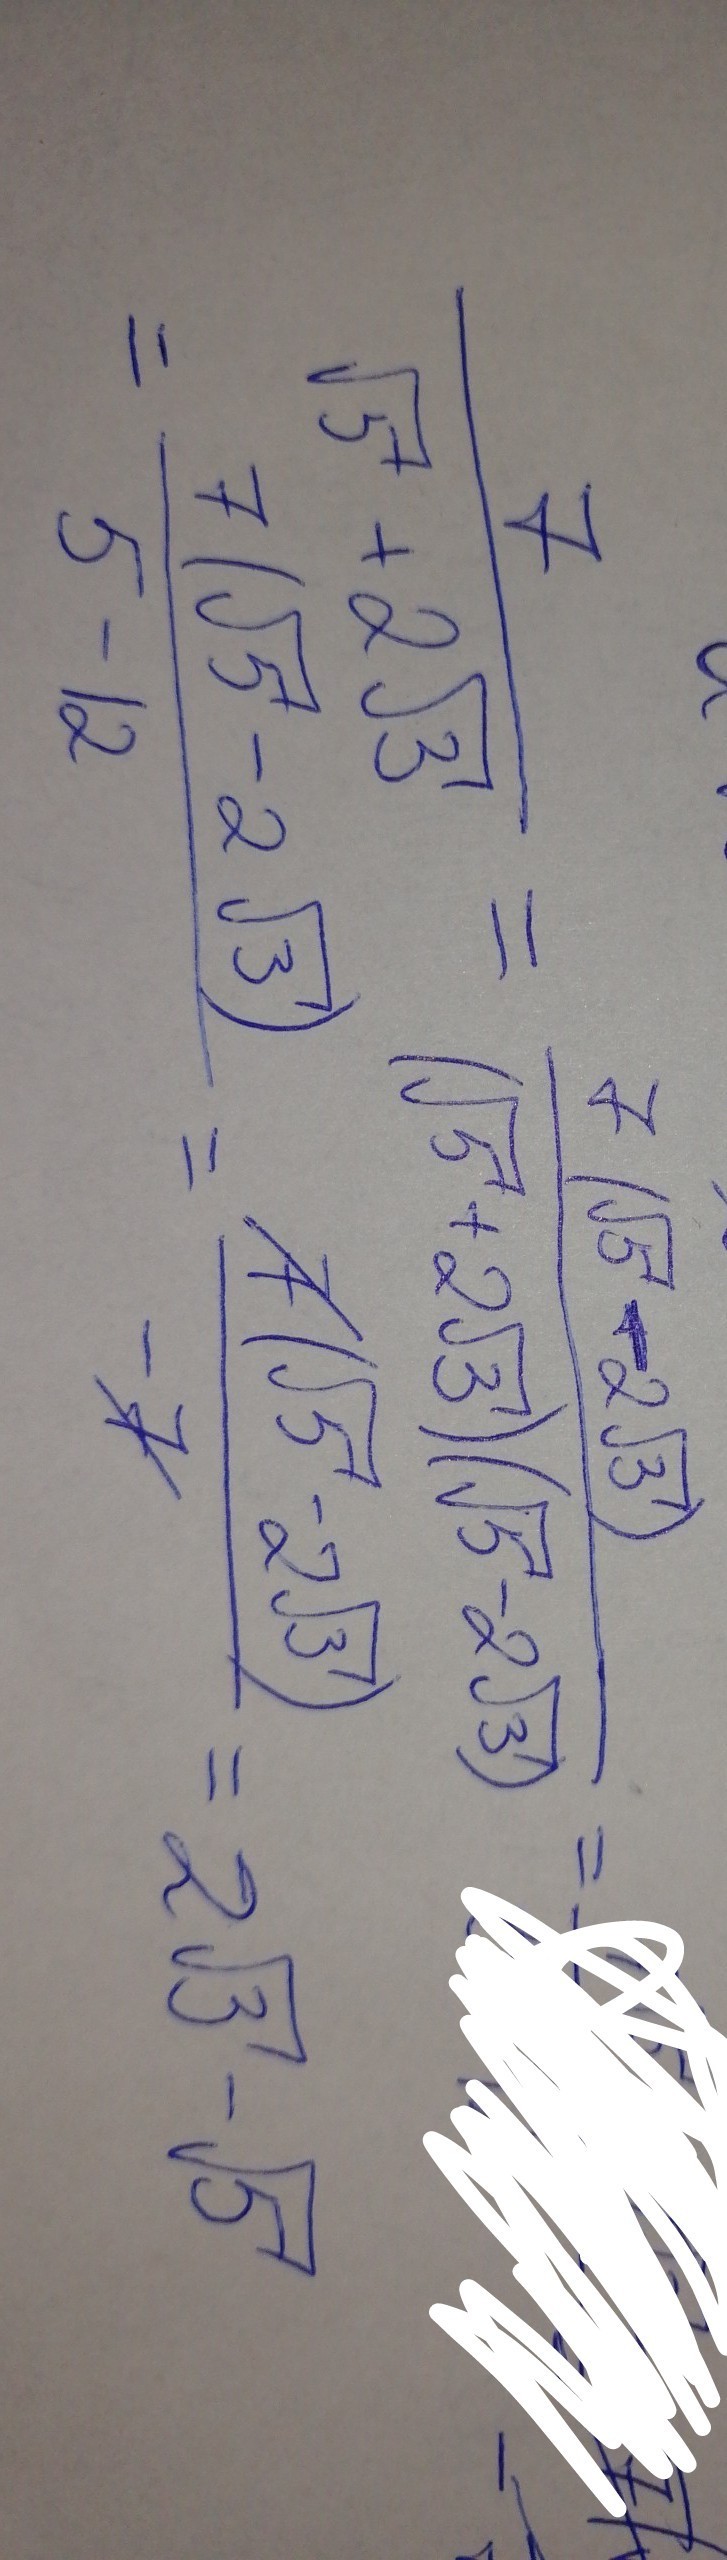 7 / (√5 + 2√3) = 7(√5 - 2√3) / ((√5 + 2√3)(√5 - 2√3)) =
= 7(√5 - 2√3) / (5 - 12) = 7(√5 - 2√3) / -7 = 2√3 - √5